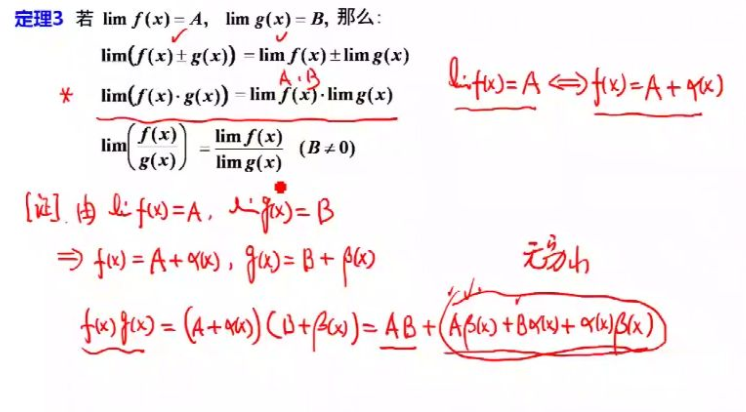 定理3 若 lim f(x) = A, lim g(x) = B, 那么:
lim(f(x) ± g(x)) = lim f(x) ± lim g(x)
A · B
* lim(f(x) · g(x)) = lim f(x) · lim g(x)
lim f(x) = A ⇔ f(x) = A + α(x)
lim(f(x)/g(x)) = lim f(x)/lim g(x) (B ≠ 0)
[证] 由 lim f(x) = A, lim g(x) = B
⇒ f(x) = A + α(x), g(x) = B + β(x)
无穷小
f(x)g(x) = (A + α(x))(B + β(x)) = AB + (Aβ(x) + Bα(x) + α(x)β(x))